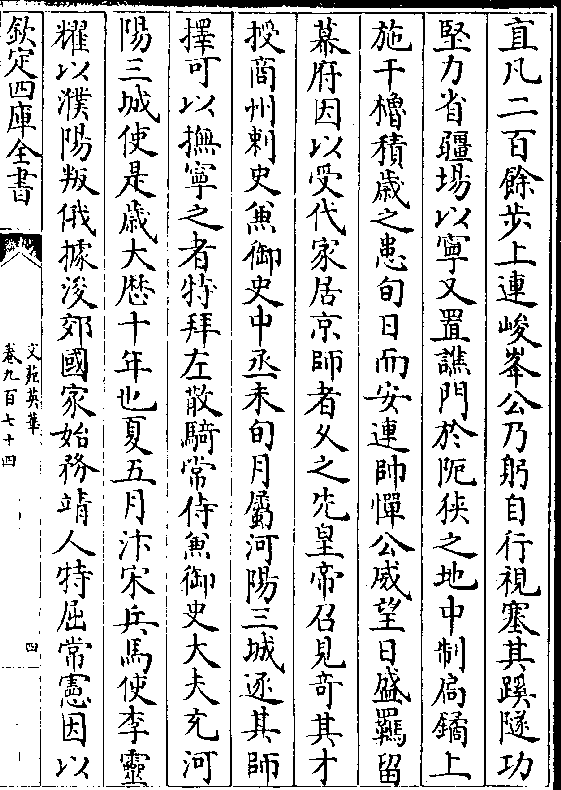 直凡二百餘歩上連峻峯公乃躬自行視塞其蹊隧功
堅力省疆埸以寧又置譙門於阨狹之地中制扄鐍上
施干櫓積歳之患旬日而安連帥憚公威望日盛羈留
幕府因以受代家居京師者乆之先皇帝召見竒其才
授商州刺史兼御史中丞未旬月屬河陽三城逐其師
擇可以撫寧之者特拜左散騎常侍兼御史大夫充河
陽三城使是歳大厯十年也夏五月汴宋兵馬使李靈
耀以濮陽叛俄據浚郊國家始務靖人特屈常憲因以
欽定四庫全書
文苑英華
卷九百七十四
四